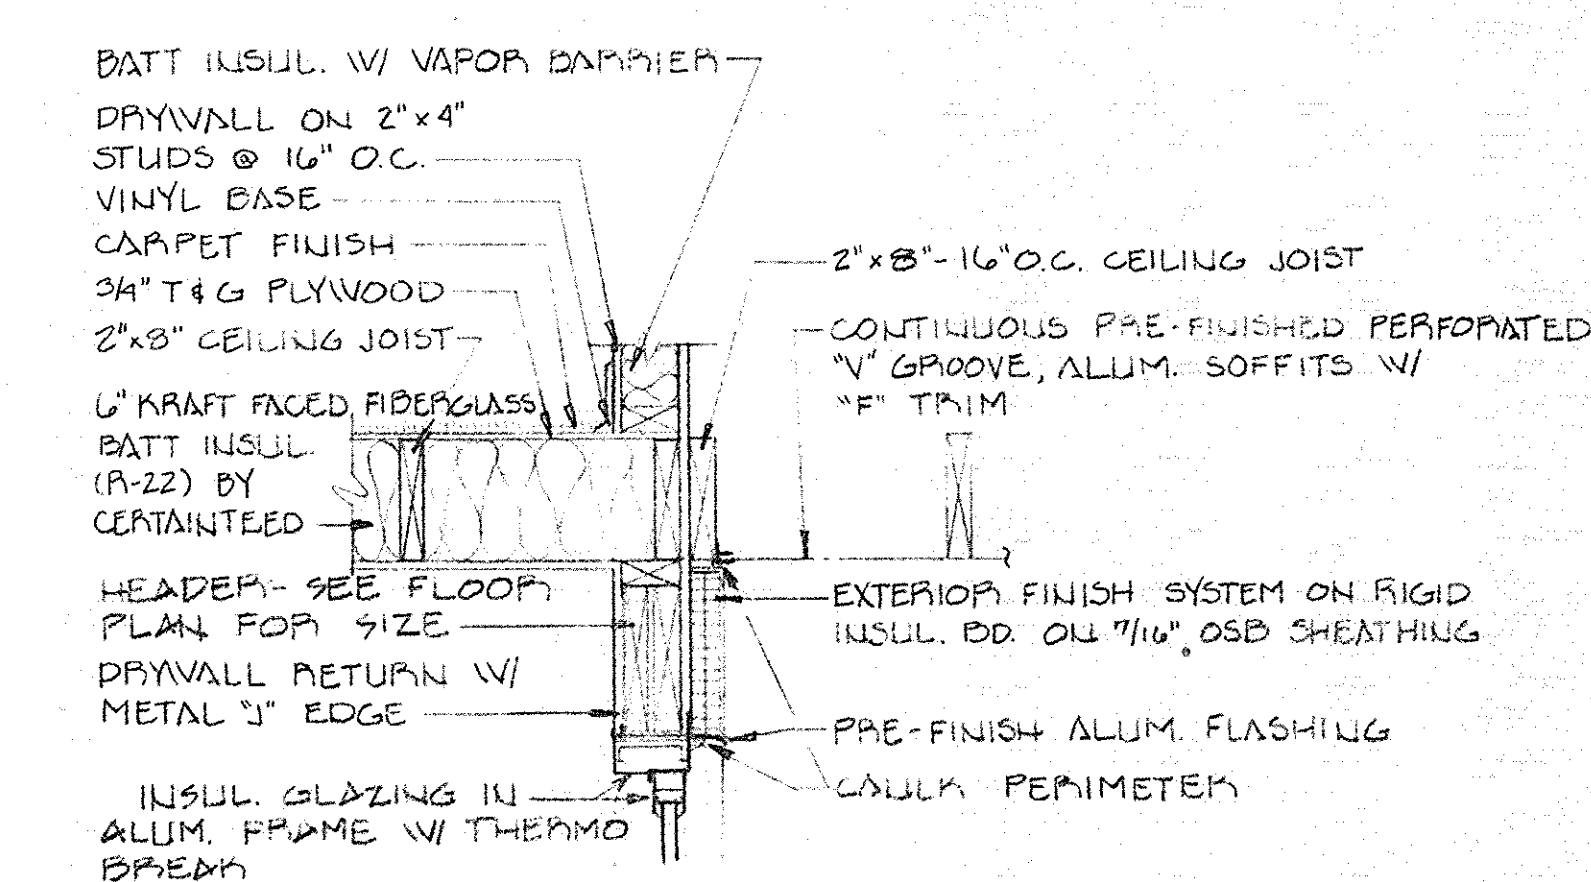 BATT INSUL. W/ VAPOR BARRIER
DRYWALL ON 2"x4"
STUDS @ 16" O.C.
VINYL BASE
CARPET FINISH
3/4" T & G PLYWOOD
2"x8" CEILING JOIST
6" KRAFT FACED FIBERGLASS
BATT INSUL.
(R-22) BY
CERTAINTEED
HEADER- SEE FLOOR
PLAN FOR SIZE
DRYWALL RETURN W/
METAL "J" EDGE
INSUL. GLAZING IN
ALUM. FRAME W/ THERMO
BREAK
2"x8"- 16" O.C. CEILING JOIST
CONTINUOUS PRE-FINISHED PERFORATED
"V" GROOVE, ALUM. SOFFITS W/
"F" TRIM
EXTERIOR FINISH SYSTEM ON RIGID
INSUL. BD. ON 7/16" OSB SHEATHING
PRE-FINISH ALUM. FLASHING
CAULK PERIMETER